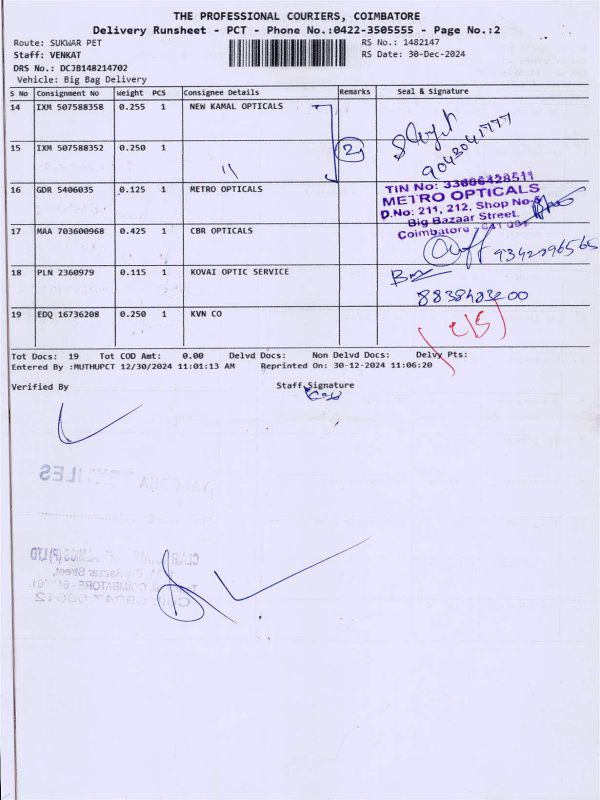 THE PROFESSIONAL COURIERS, COIMBATORE
Delivery Runsheet - PCT - Phone No.:0422-3505555 - Page No.:2
Route: SUKWAR PET RS No.: 1482147
Staff: VENKAT RS Date: 30-Dec-2024
DRS No.: DCJB148214702
Vehicle: Big Bag Delivery
S No Consignment No Weight PCS Consignee Details Remarks Seal & Signature
14 IXM 507588358 0.255 1 NEW KAMAL OPTICALS
9043041777
15 IXM 507588352 0.250 1 " 2
16 GDR 5406035 0.125 1 METRO OPTICALS
TIN No: 33686428511
METRO OPTICALS
D.No: 211, 212, Shop No.5
Big Bazaar Street,
Coimbatore - 641 001
17 MAA 703600968 0.425 1 CBR OPTICALS
18 PLN 2360979 0.115 1 KOVAI OPTIC SERVICE
19 EDQ 16736208 0.250 1 KVN CO
Tot Docs: 19 Tot COD Amt: 0.00 Delvd Docs: Non Delvd Docs: Delvy Pts:
Entered By :MUTHUPCT 12/30/2024 11:01:13 AM Reprinted On: 30-12-2024 11:06:20
Verified By Staff Signature